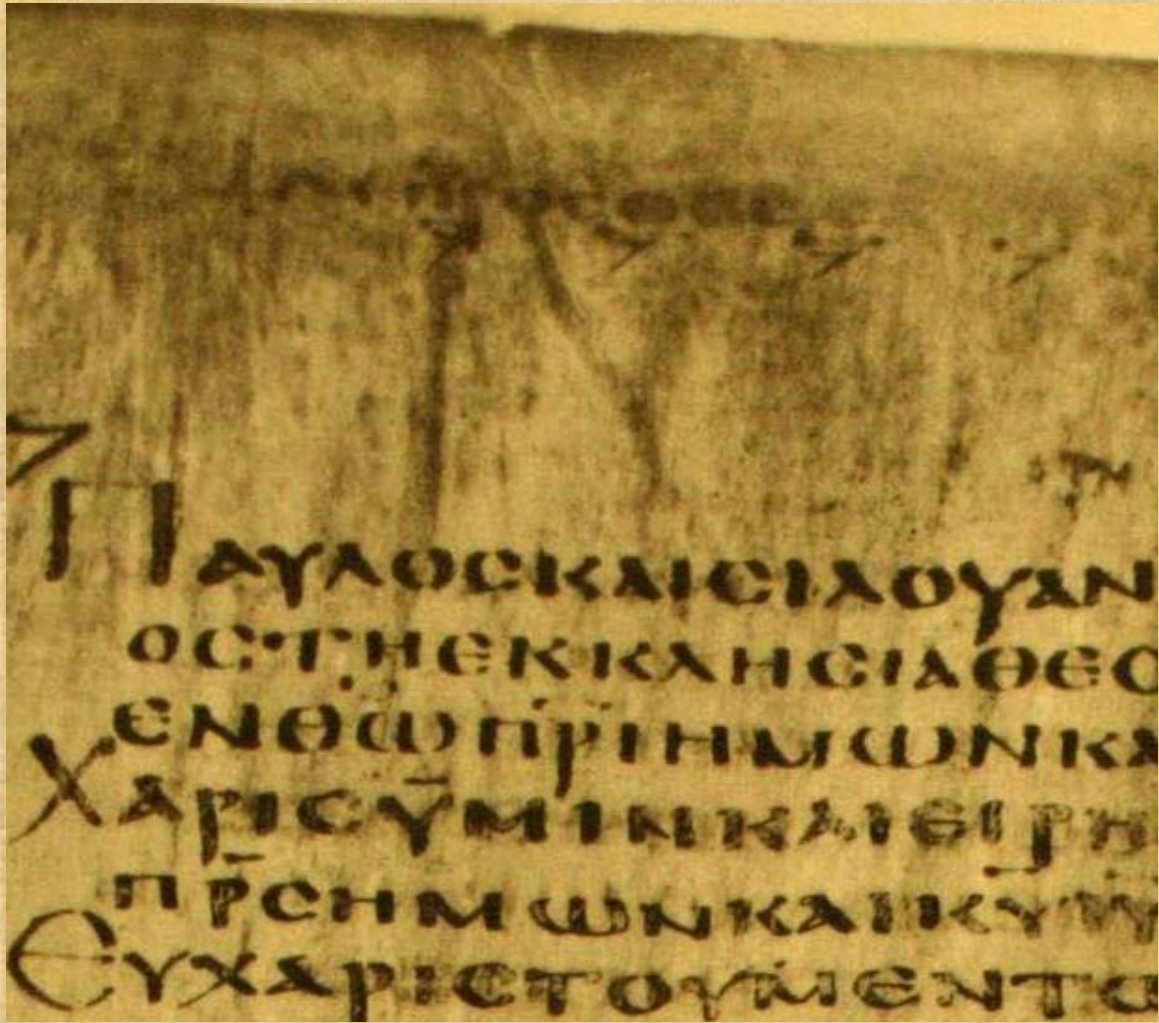 ΠΑΥΛΟϹΚΑΙϹΙΛΟΥΑΝ
ΟϹΤΗΕΚΚΛΗϹΙΑΘΕϹ
ΕΝΘΩΠΡΙΗΜΩΝΚΑ
ΧΑΡΙϹΥΜΙΝΚΑΙΕΙΡΗ
ΠΡϹΗΜΩΝΚΑΙΚΥΙΥ
ΕΥΧΑΡΙϹΤΟΥΜΕΝΤΩ